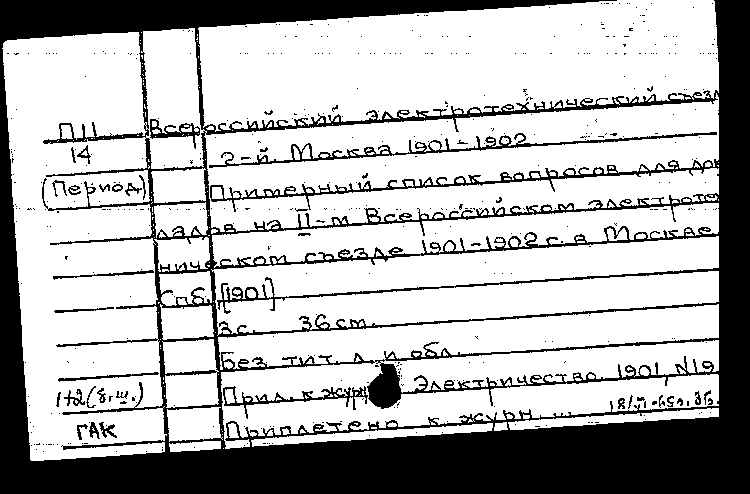 П11 Всероссийский электротехнический съезд
14 2-й. Москва 1901-1902
(Период) Примерный список вопросов для док
ладов на II-м Всероссийском электроте
ническом съезде 1901-1902 г. в Москве
Спб. [1901].
3 с. 36 см.
Без тит. л. и обл.
1+2(8.ш.) Прил. к журн Электричество. 1901, N19
ГАК Приплетено к журн. ...